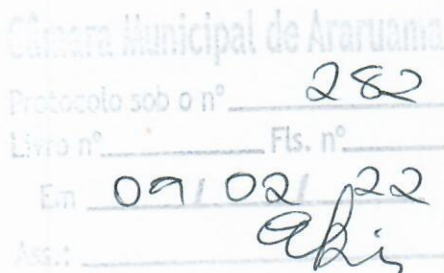 Câmara Municipal de Araruama
Protocolo sob o nº 282
Livro nº Fls. nº
Em 09 / 02 / 22
Ass.: